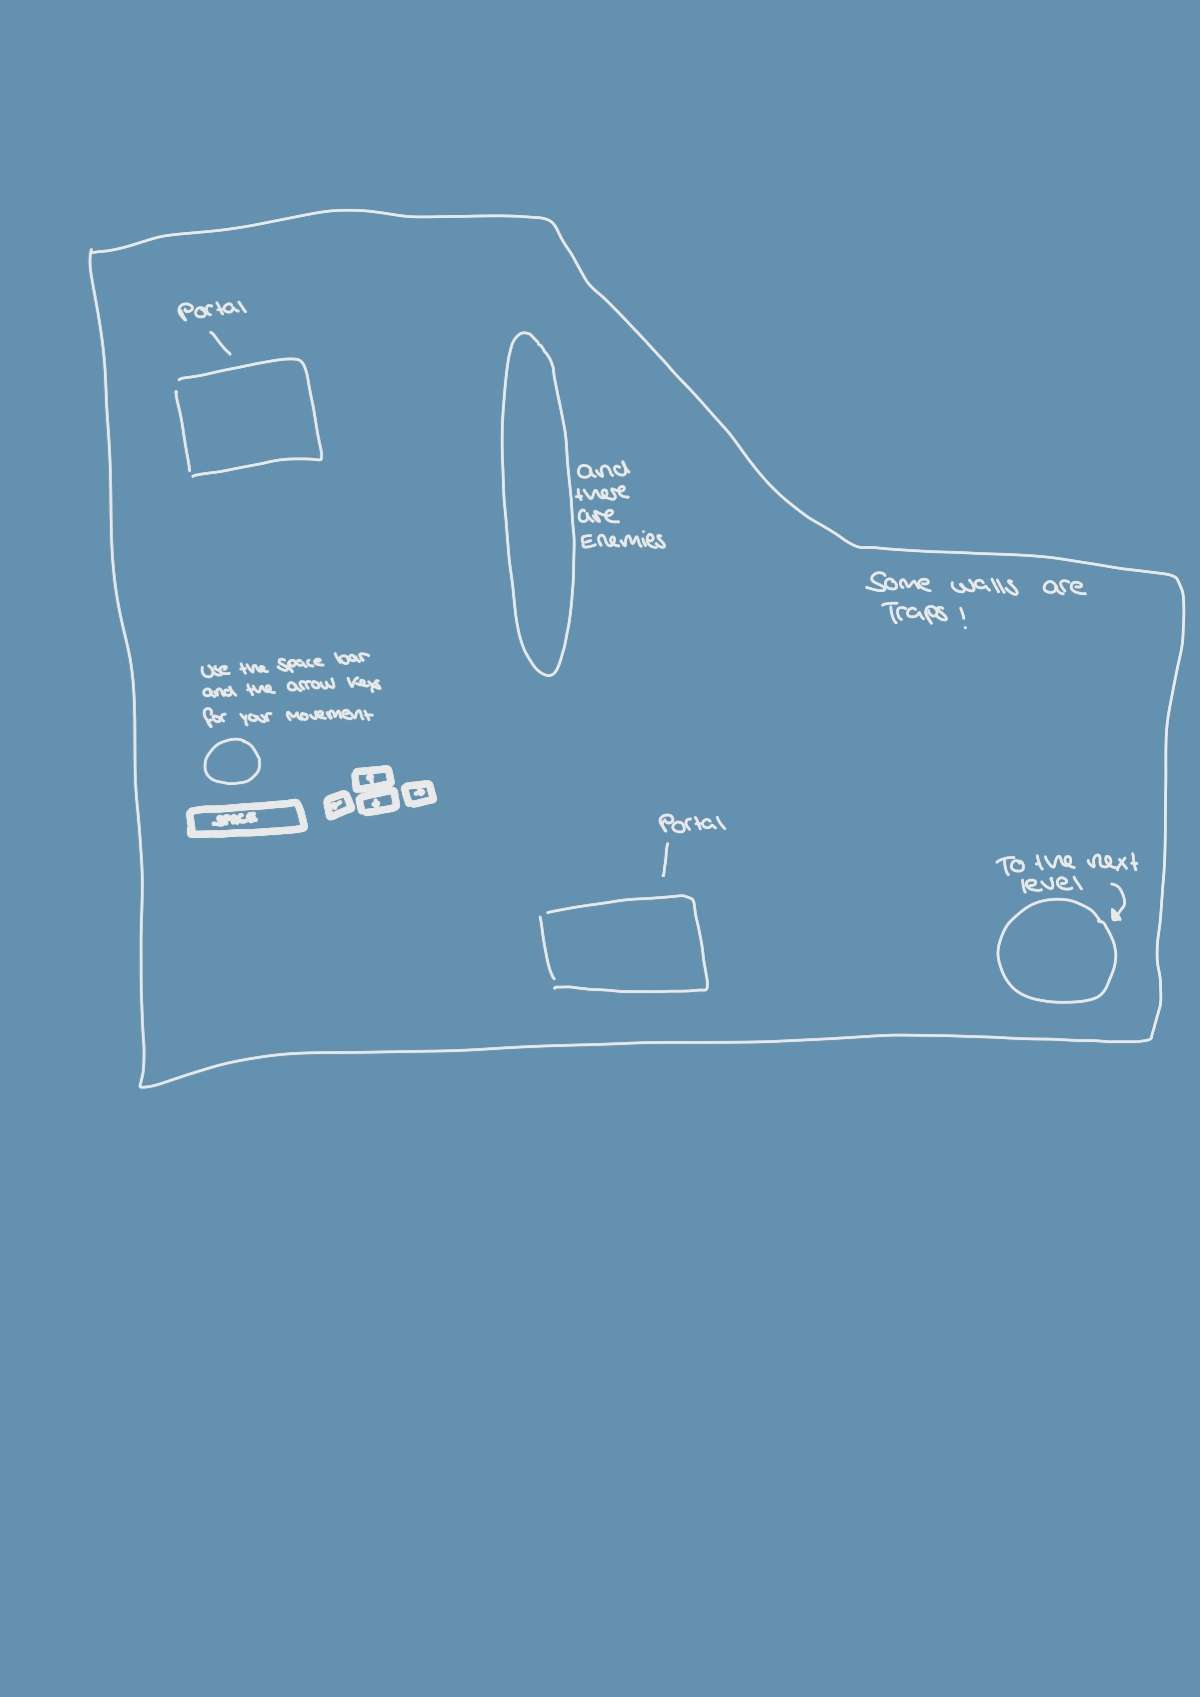 Portal
and
there
are
Enemies
Some walls are
Traps!
Use the space bar
and the arrow keys
for your movement
SPACE
Portal
To the next
level